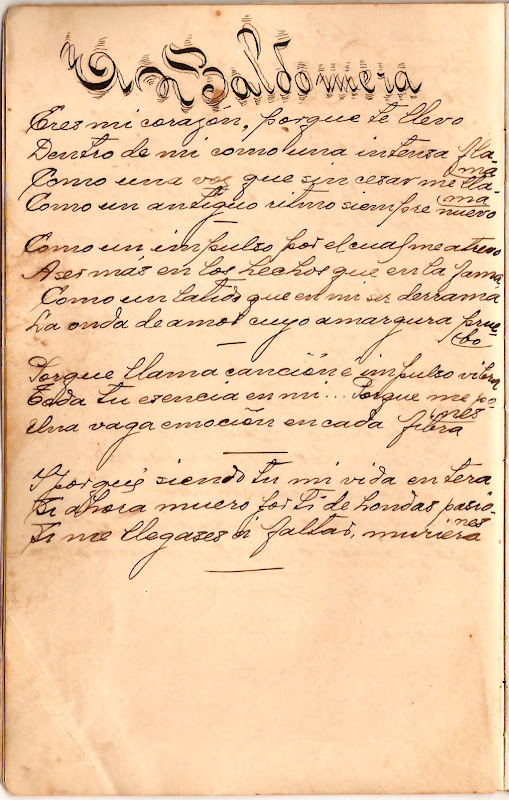 A Baldomera
Eres mi corazón, porque te llevo
Dentro de mi como una intensa fla-
ma
Como una voz que sin cesar me lla-
ma
Como un antiguo ritmo siempre nuevo
Como un impulso por el cual me atrevo
A ser más en los hechos que en la fama,
Como un latido que en mi ser derrama
La onda de amor cuyo amargura prue-
bo
Porque llama canción e impulso vibra
Toda tu esencia en mi... Porque me po-
nes
Una vaga emoción en cada fibra
Y porqué siendo tu mi vida entera
Si ahora muero por ti de hondas pasio-
nes
Si me llegases a faltar, muriera